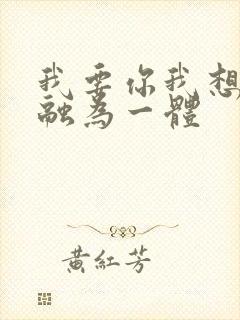 我要你我想
融為一體
黃紅芳